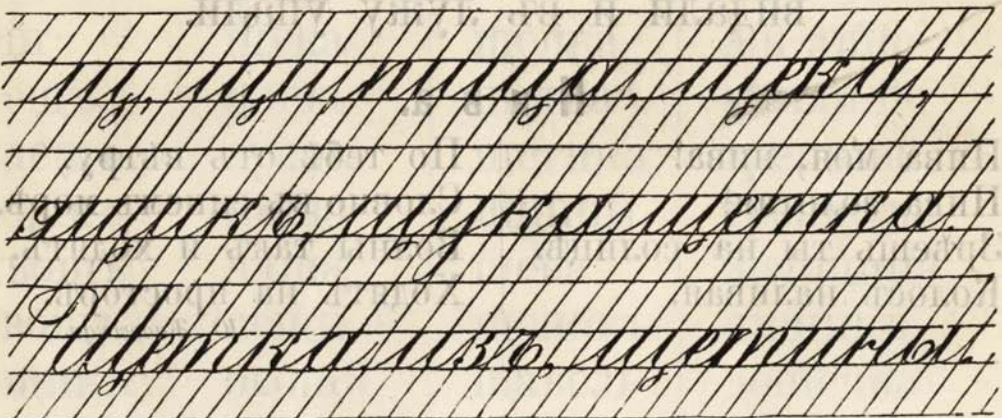 щ, щи, пища, щека,
ящикъ, щука, щетка.
Щетка изъ щетины.